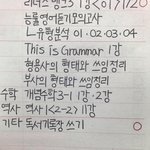 리더스 뱅크3 1강 <01> 1/20
능률 영어듣기모의고사
ㄴ유형분석 01·02·03·04
This is Grammar 1강
형용사의 형태와 쓰임정리
부사의 형태와 쓰임정리
수학 개념수학3-1 1강·2강
역사 역사 1<2-2> 11강
기타 독서기록장 쓰기